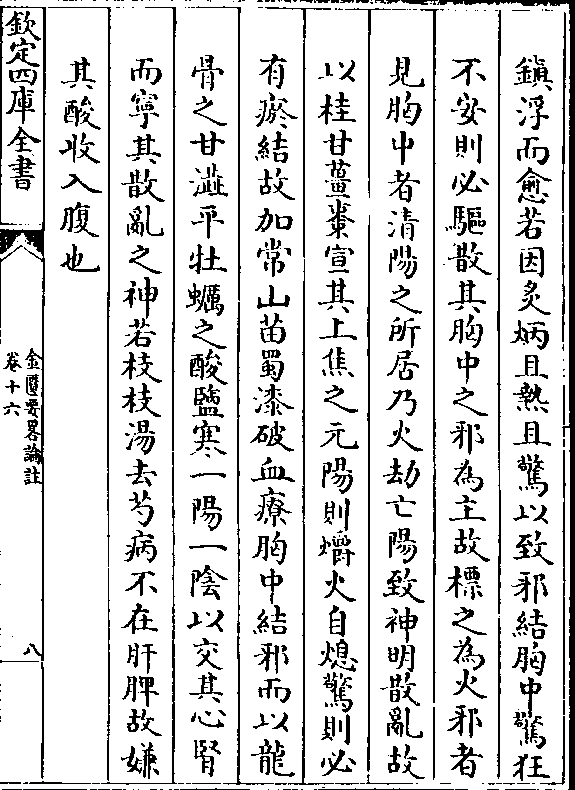 鎮浮而愈若因炙焫且熱且驚以致邪結胸中驚狂
不安則必驅散其胸中之邪為主故標之為火邪者
見胸中者清陽之所居乃火劫亡陽致神明散亂故
以桂甘薑棗宣其上焦之元陽則爝火自熄驚則必
有瘀結故加常山苗蜀漆破血療胸中結邪而以龍
骨之甘澁平牡蠣之酸鹽寒一陽一陰以交其心腎
而寧其散亂之神若枝枝湯去芍病不在肝脾故嫌
其酸收入腹也
欽定四庫全書
金匱要畧論註
卷十六
八